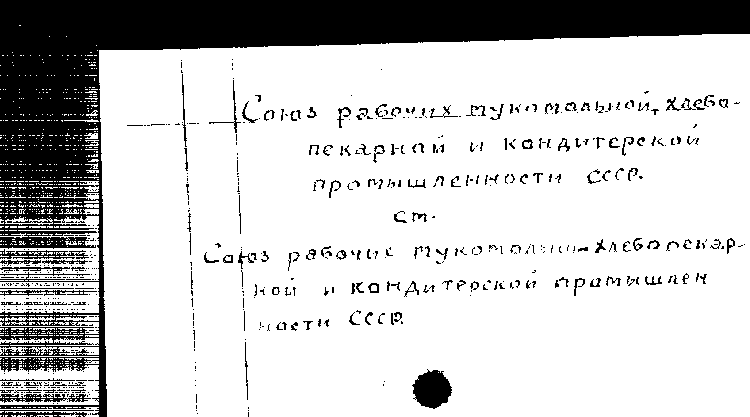 Союз рабочих мукомольной, хлебо-
пекарной и кондитерской
промышленности СССР.
см.
Союз рабочих хлебопекар-
ной и кондитерской промышлен
ности СССР.